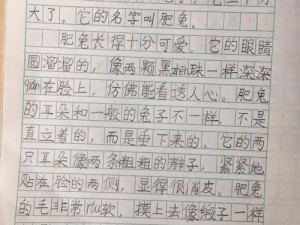 大了。它的名字叫肥兔。
肥兔长得十分可爱。它的眼睛
圆溜溜的，像两颗黑zhēn珠一样深深
qiàn在脸上，仿佛能看透人心。肥兔
的耳朵和一般的兔子不一样，不是
直立着的，而是垂下来的。它的两
只耳朵像两条粗粗的辫子，紧紧地
贴在脸的两侧，显得很俏皮。肥兔
的毛非常róu软，摸上去像缎子一样